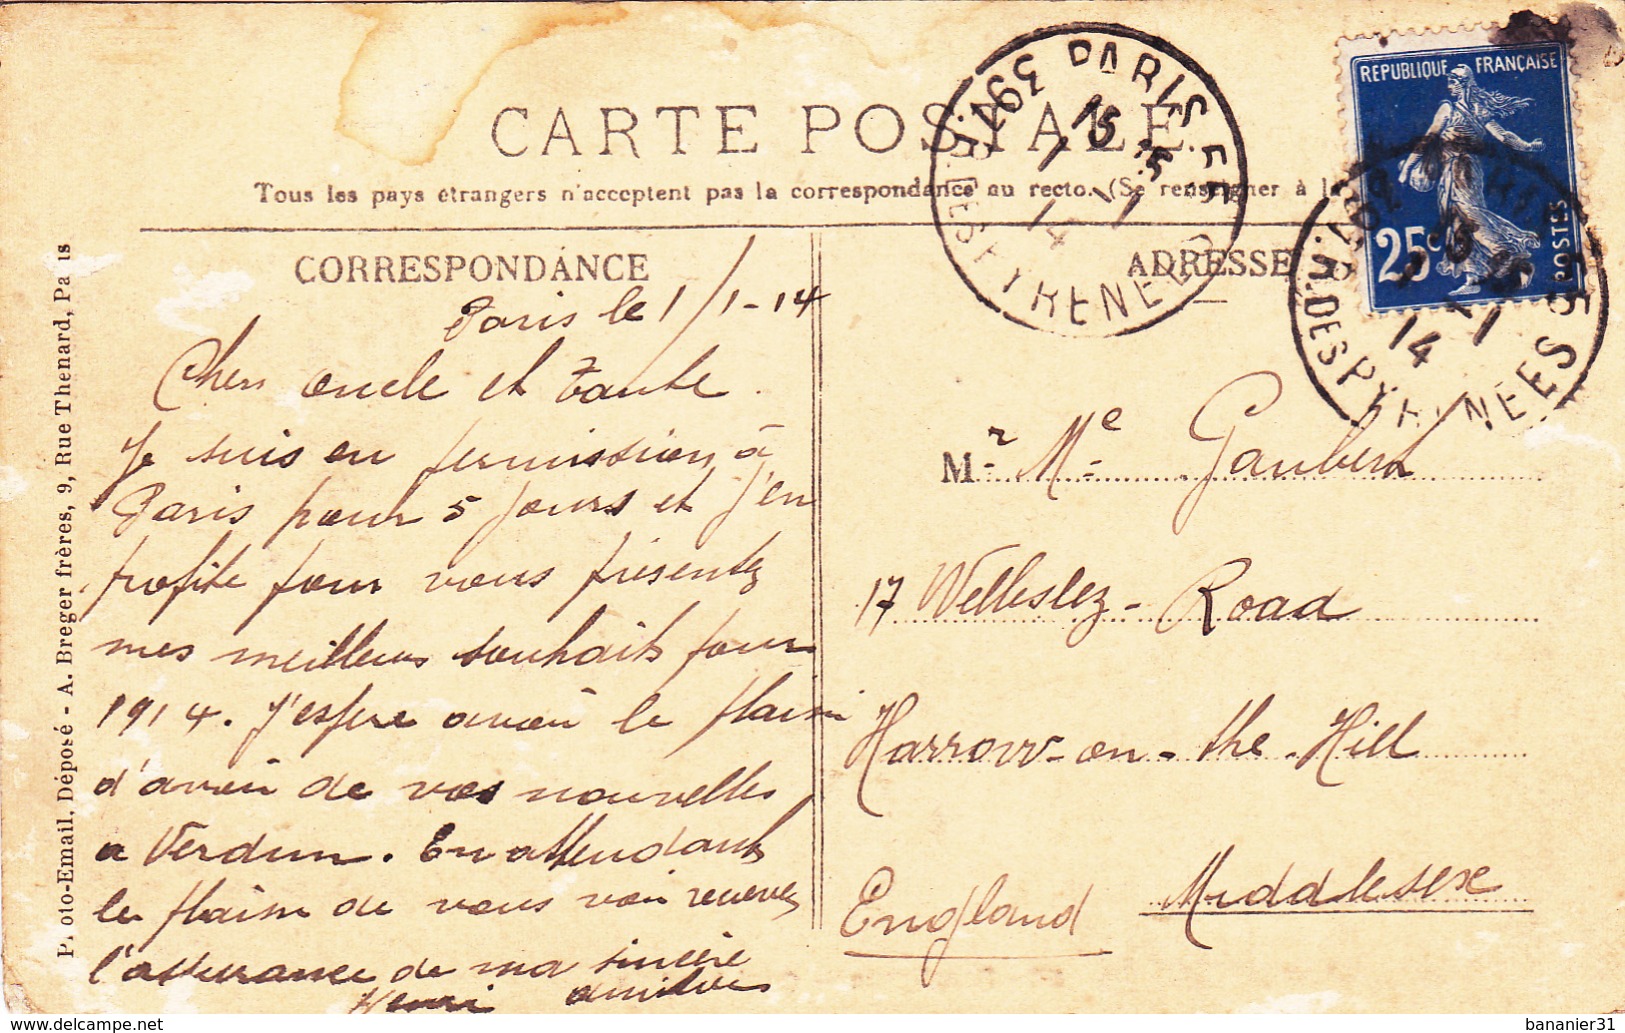 CARTE POSTALE
Tous les pays étrangers n'acceptent pas la correspondance au recto. (Se renseigner à la
CORRESPONDANCE
ADRESSE
REPUBLIQUE FRANÇAISE
25c
POSTES
PARIS 55
R. DES PYRENEES
15
1
14
PARIS
R. DES PYRENEES
14
P. oto-Email, Déposé - A. Breger frères, 9, Rue Thenard, Pa is
Paris le 1/1-14
Chers oncle et tante.
Je suis en permission à
Paris pour 5 jours et j'en
profite pour vous présentez
mes meilleurs souhaits pour
1914. J'espère avoir le plaisir
d'avoir de vos nouvelles
a Verdun. En attendant
le plaisir de vous voir recevez
l'assurance de ma sincère
Henri amitiés
Mr Me Gaubert
17 Wellesley - Road
Harrow-on-the-Hill
Middlesex
England
bananier31